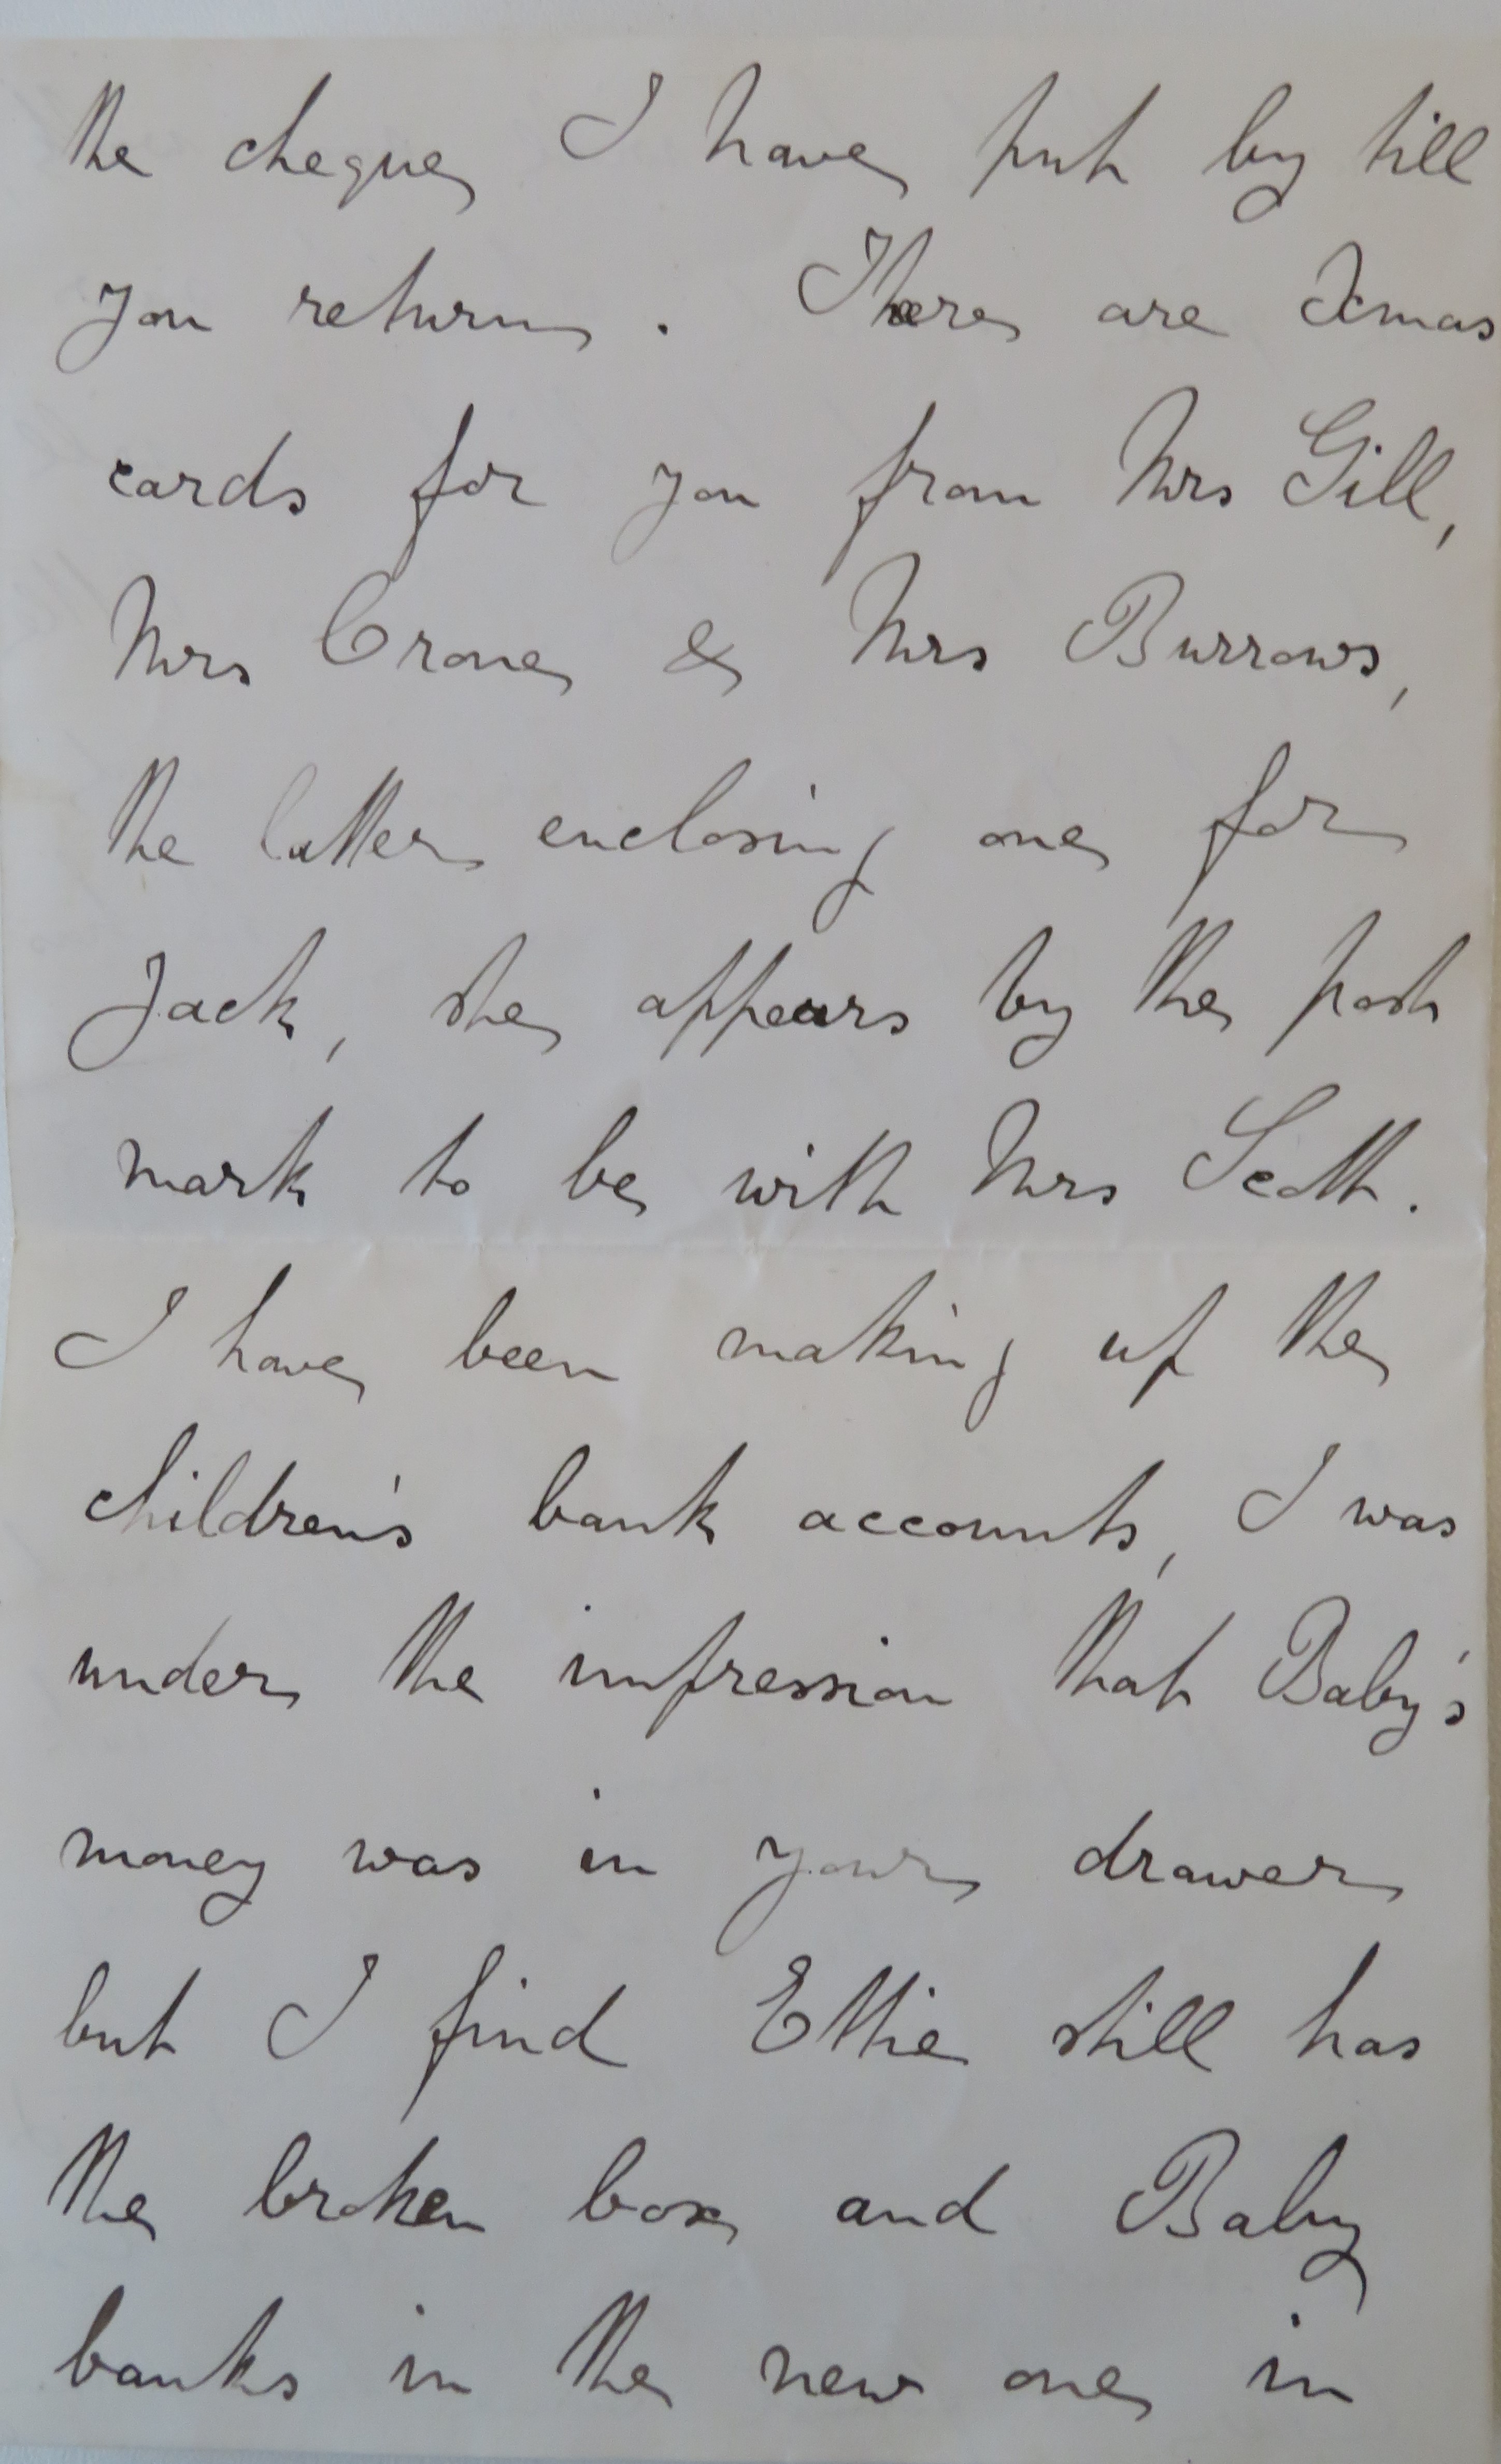 the cheque I have put by till
you return. There are Xmas
cards for you from Mrs Gill,
Mrs Crone & Mrs Burrows,
the latter enclosing one for
Jack, she appears by the post
mark to be with Mrs Scott.
I have been making up the
children's bank accounts, I was
under the impression that Baby's
money was in your drawer
but I find Ethie still has
the broken box and Baby
banks in the new one in